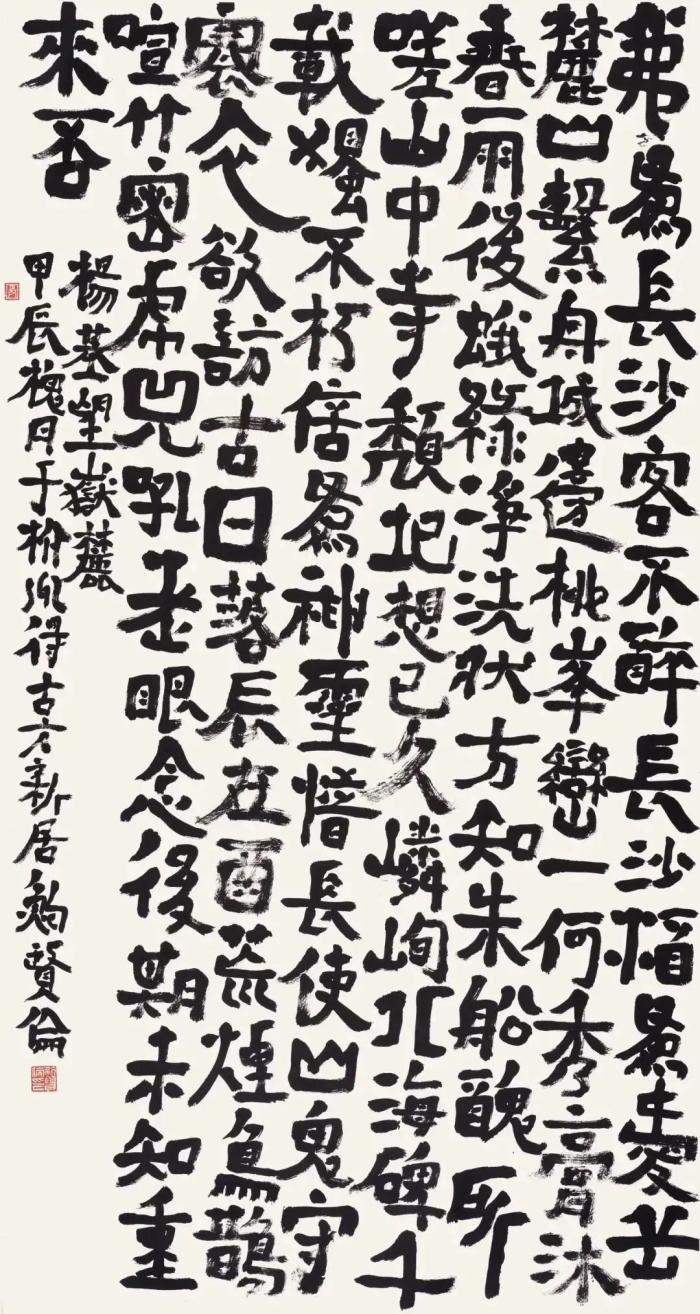 弗為長沙客不醉長沙酒為愛岳
麓山繫舟城邊柳峯巒一何秀膏沐
春雨後蛾綠淨洗妝方知朱鉛醜所
嗟山中寺頹圮想已久嶙峋北海碑千
載獨不朽信為神靈惜長使山鬼守
褰衣欲訪古日落辰在酉荒煙鳥鵲
喧竹密虎兕吼老眼念後期未知重
來否
楊基望嶽麓
甲辰槐月于得古方新居賢倫